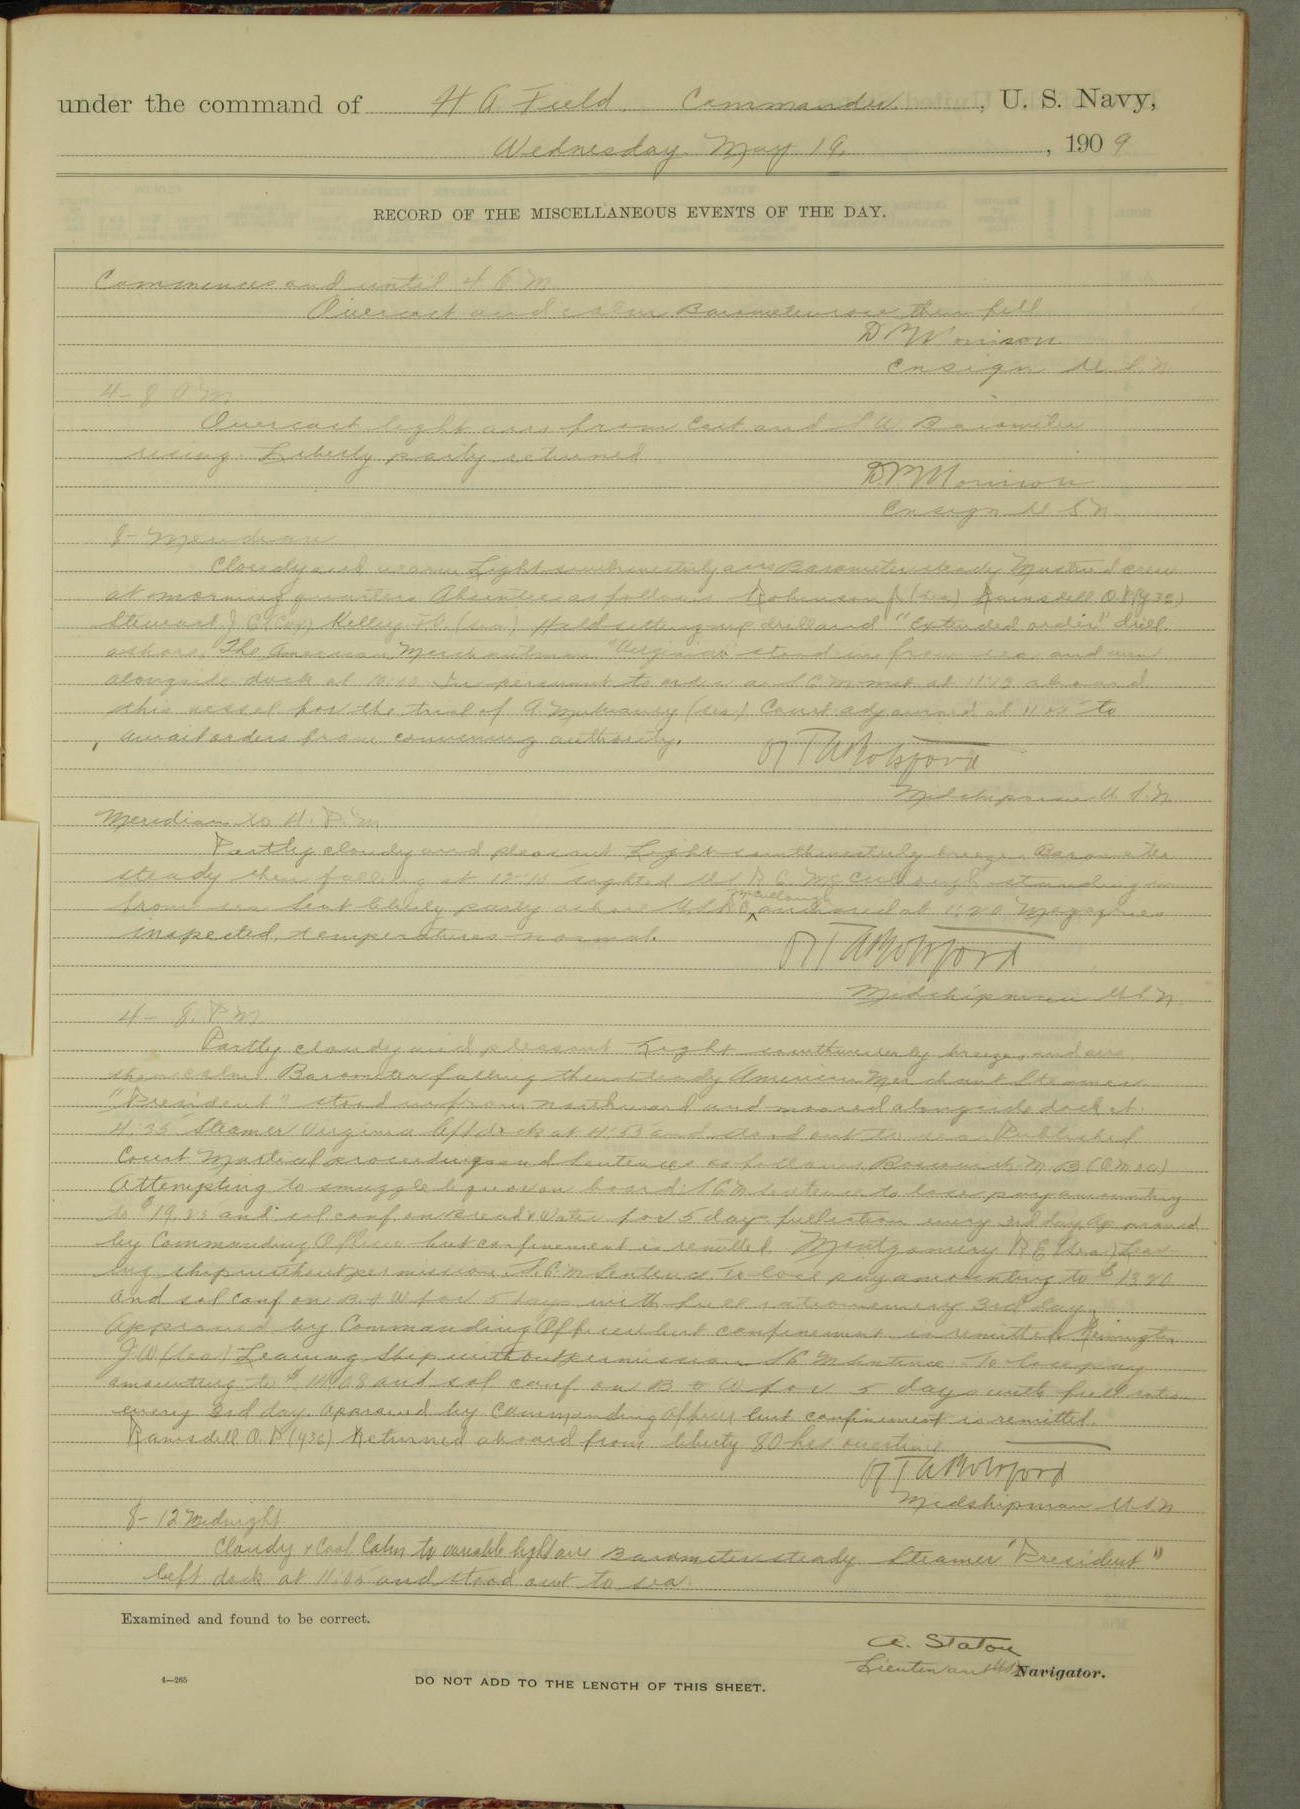 under the command of H A Field Commander, U. S. Navy,
Wednesday May 19, 1909
RECORD OF THE MISCELLANEOUS EVENTS OF THE DAY.
Commences and until 4 A M
Overcast and calm Barometer rose then fell
Ensign U. S. N.
4 - 8 A M
Overcast light airs from East and S W Barometer
rising. Liberty party returned
Ensign U S N
8 - Meridian
Cloudy and warm Light southwesterly airs Barometer steady Mustered crew
at morning quarters Absentees as follows Robinson J. (sea) Ramsdell O. R (y3c)
Stewart J. C (Cox) Kelley (sea) Held setting up drill and "Extended order" drill
ashore. The American Merchantman "Virginia" stood in from sea and went
alongside dock at 10:10 In persuant to order a S C M met at 11:13 aboard
this vessel for the trial of A Mulvaney (sea) Court adjourned at to
await orders from convening authority.
Midshipman U. S. N
Meridian to 4. P. M
Partly cloudy and pleasant Light southwesterly breeze Barometer
steady then falling at 12:15 sighted U S R C McCullough standing in
from sea Sent liberty party ashore U S R C McCullough anchored at 1:20 Magazines
inspected, temperatures normal.
Midshipman U S N
4 - 8. P M
Partly cloudy and pleasant Light southwesterly breeze and airs
then calm Barometer falling then steady American Merchant Steamer
"President" stood in from northward and moored alongside dock at
4:35 Steamer Virginia left dock at 4:53 and stood out to sea Published
Court Martial proceedings and sentences as follows M B
Attempting to smuggle liquor on board S C M Sentence to lose pay amounting
to $ and sol conf on Bread & Water for 5 days full ration every 3rd day Approved
by Commanding Officer but confinement is remitted Montgomery R E (sea) Leav-
ing ship without permission S. C. M Sentence To lose pay amounting to $ 13 20
and sol conf on B & W for 5 days with full ration every 3rd day.
Approved by Commanding Officer but confinement is remitted Remington
J W (sea) Leaving Ship without permission S C M Sentence. To lose pay
amounting to $ and sol conf on B & W for 5 days with full ration
every 3rd day. Approved by Commanding Officer but confinement is remitted.
Ramsdell O. R (y3c) Returned aboard from liberty 80 hrs overtime
Midshipman U S N
8 - 12 Midnight
Cloudy & Cool Calm to variable light airs Barometer steady Steamer "President"
left dock at 11:05 and stood out to sea.
Examined and found to be correct.
A. Staton
Lieutenant USN Navigator.
4—265
DO NOT ADD TO THE LENGTH OF THIS SHEET.